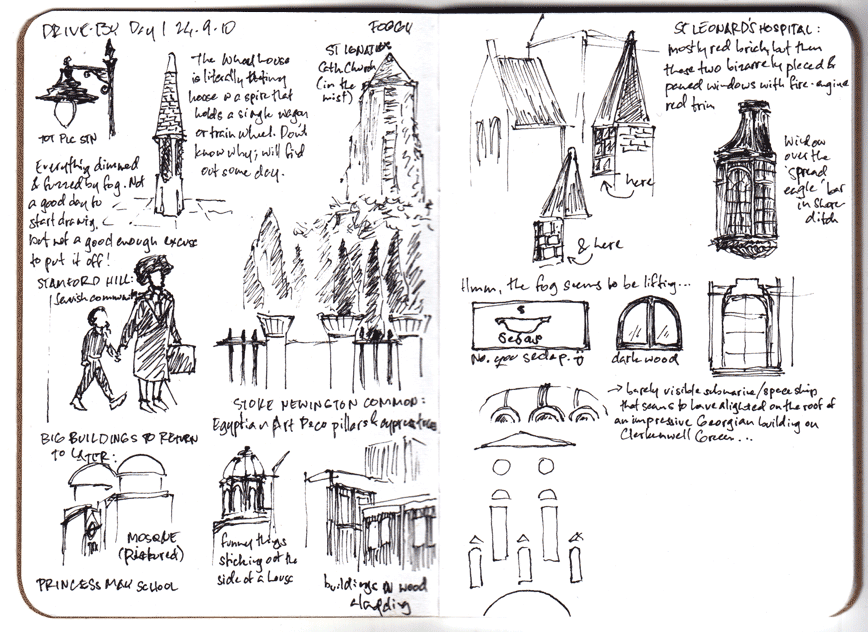 DRIVE-BY Day 1 24.9.10
FOGGY
TOT PLC STN
The Wheel house
is literally that:
house is a spire that
holds a single wagon
or train wheel. Don't
know why; will find
out some day.
ST IGNATIUS
Cath Church
(in the
mist)
Everything dimmed
& fuzzed by fog. Not
a good day to
start drawing,
but not a good enough excuse
to put it off!
STAMFORD HILL:
Jewish community
STOKE NEWINGTON COMMON:
Egyptian Art Deco pillars & cypress trees
BIG BUILDINGS TO RETURN
TO LATER:
MOSQUE
(Pictured)
PRINCESS MAY SCHOOL
funny things
sticking out the
side of a house
buildings in wood
cladding
ST LEONARD'S HOSPITAL:
mostly red brick, but then
these two bizarrely placed &
paned windows with fire-engine
red trim
here
& here
Window
over the
'spread
eagle' bar
in Shore-
ditch
Hmm, the fog seems to be lifting...
Sedap
No, you sedap.
dark wood
→ barely visible submarine/spaceship
that seems to have alighted on the roof of
an impressive Georgian building on
Clerkenwell Green...